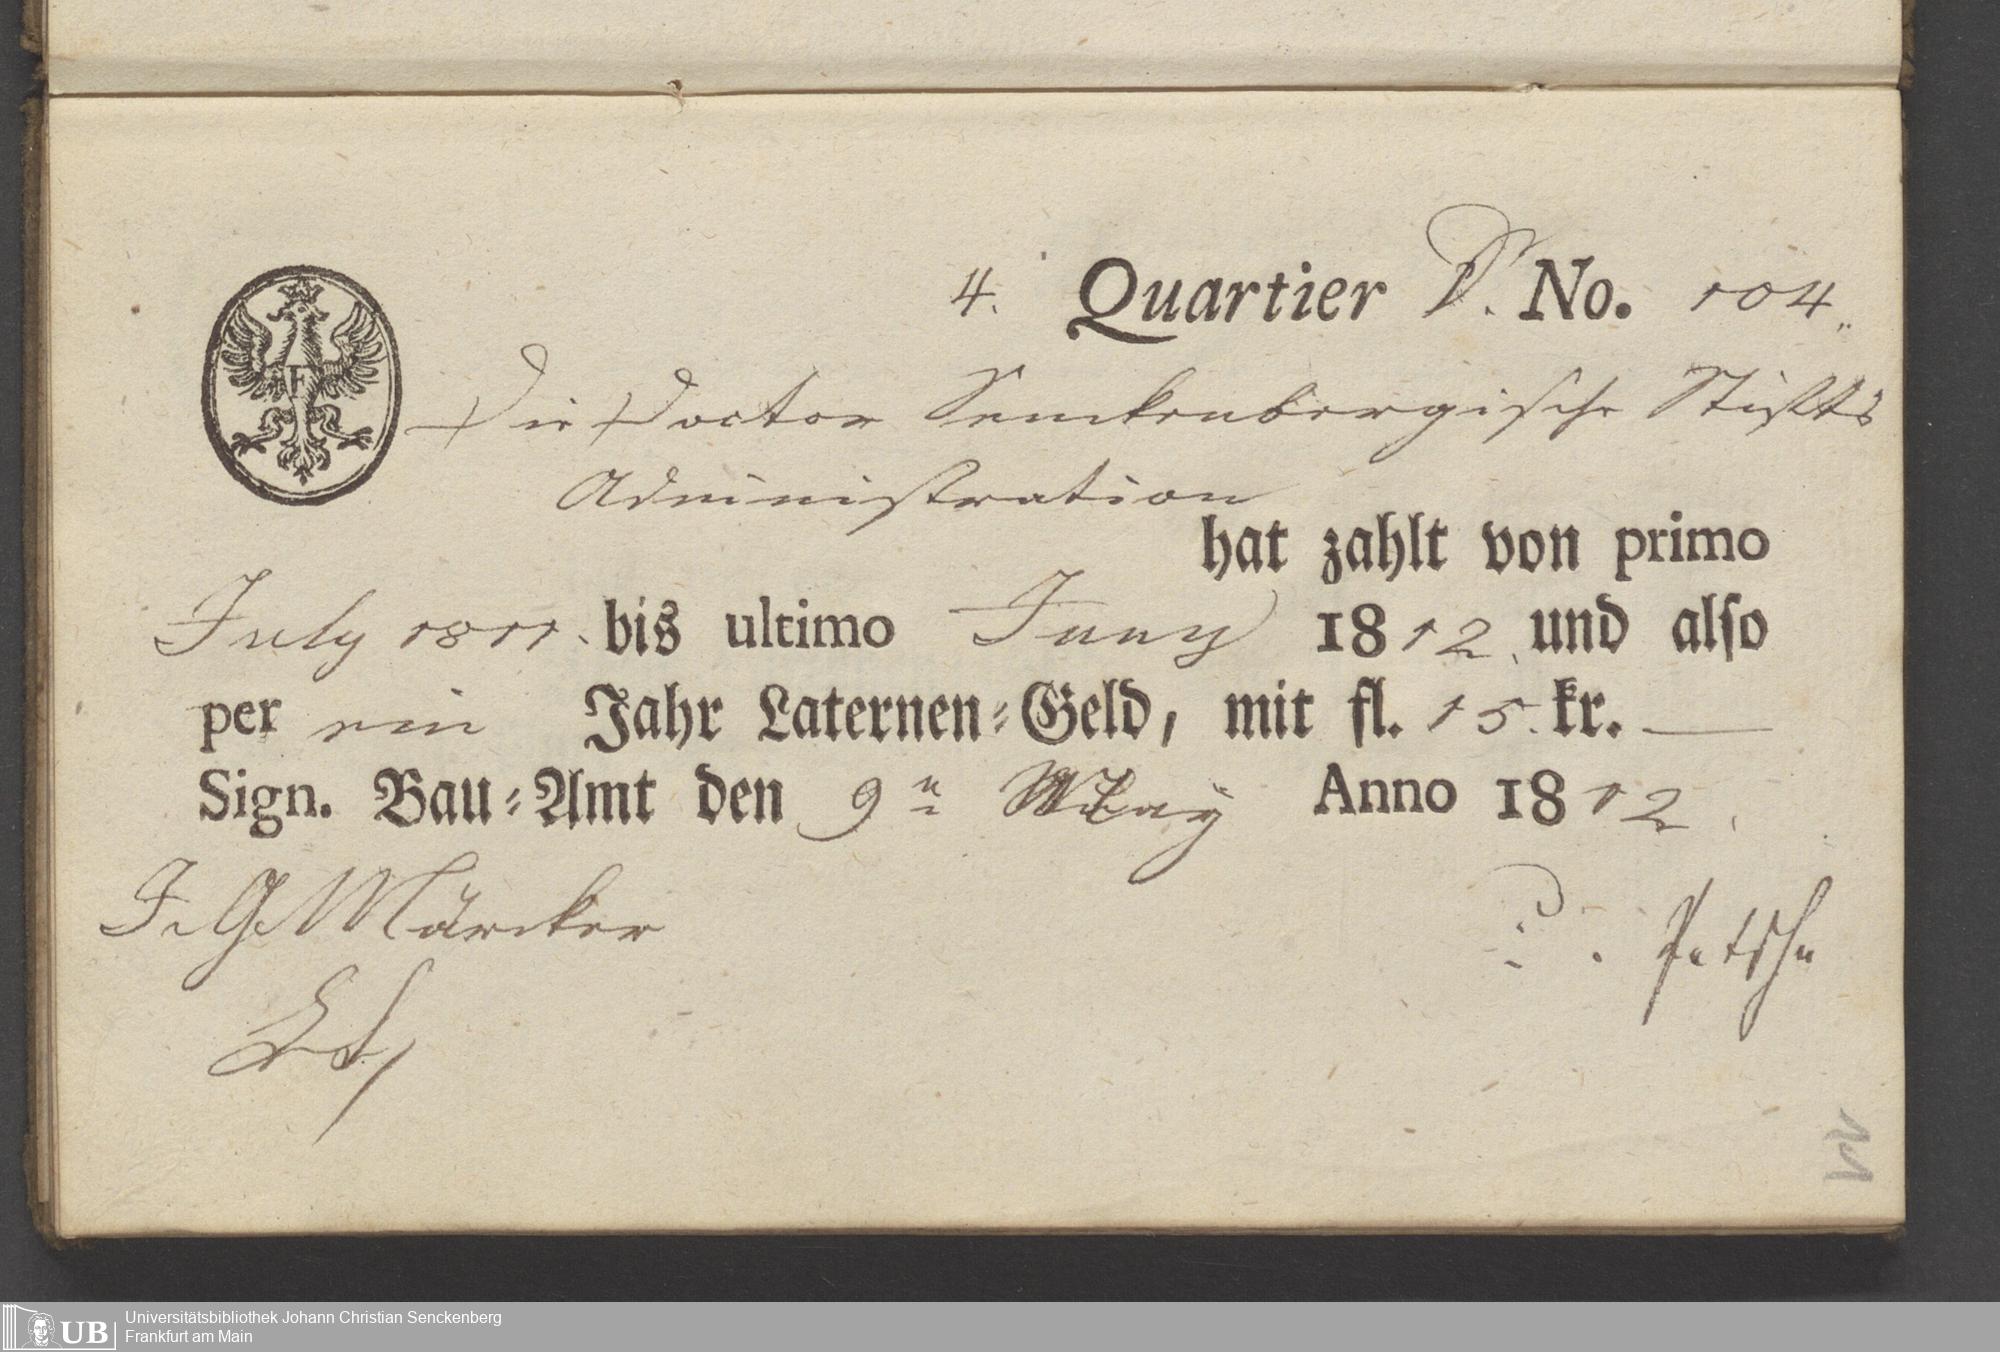 4. Quartier D. No. 104
F
Die Doctor Senckenbergische Stifts
Administration
hat zahlt von primo
July 1811. bis ultimo Juny 1812. und also
per ein Jahr Laternen-Geld, mit fl. 15. kr. —
Sign. Bau-Amt den 9n May Anno 1812.
J. G. Märcker
Universitätsbibliothek Johann Christian Senckenberg
UB Frankfurt am Main